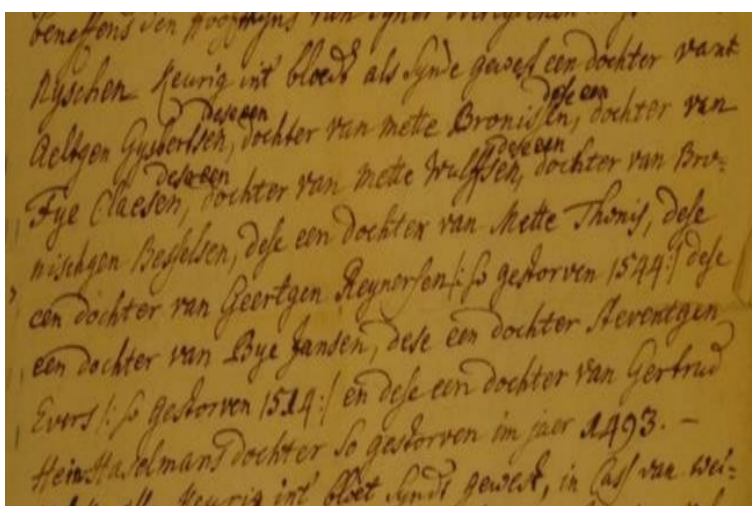 beneffens den van syner
Ryschen Keurig int' bloedt als synde gewest een dochter vant
dese een dese een
Aeltgen Gysbertsen, dochter van mette Bronissen, dochter van
dese een dese een
Fye Claesen, dochter van mette Wulffsen, dochter van Bro-
nischgen Besselsen, dese een dochter van Mette Thonis, dese
een dochter van Geertgen Reynersen /: so gestorven 1544 :/ dese
een dochter van Bye Jansen, dese een dochter Steventgen
Evers /: so gestorven 1514 :/ en dese een dochter van Gertrud
Hein Haselmans dochter so gestorven im jaer 1493. —
Keurig int' bloet synde gewest, in Cass van wei-